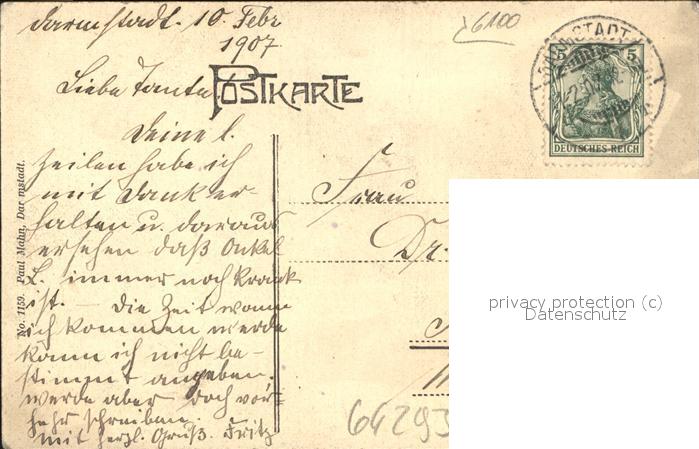 Darmstadt. 10. Febr
1907.
6100
DARMSTADT
5
DEUTSCHES REICH
POSTKARTE
Liebe Tante
Deine l.
Zeilen habe ich
mit Dank er-
halten u. daraus
ersehen daß Onkel
L. immer noch krank
ist. — Die Zeit wann
ich kommen werde
kann ich nicht be-
stimmt angeben.
werde aber doch vor-
her schreiben.
mit herzl. Gruß. Fritz
No. 1159. Paul Mahn, Darmstadt.
Frau
Dr.
64293
privacy protection (c)
Datenschutz